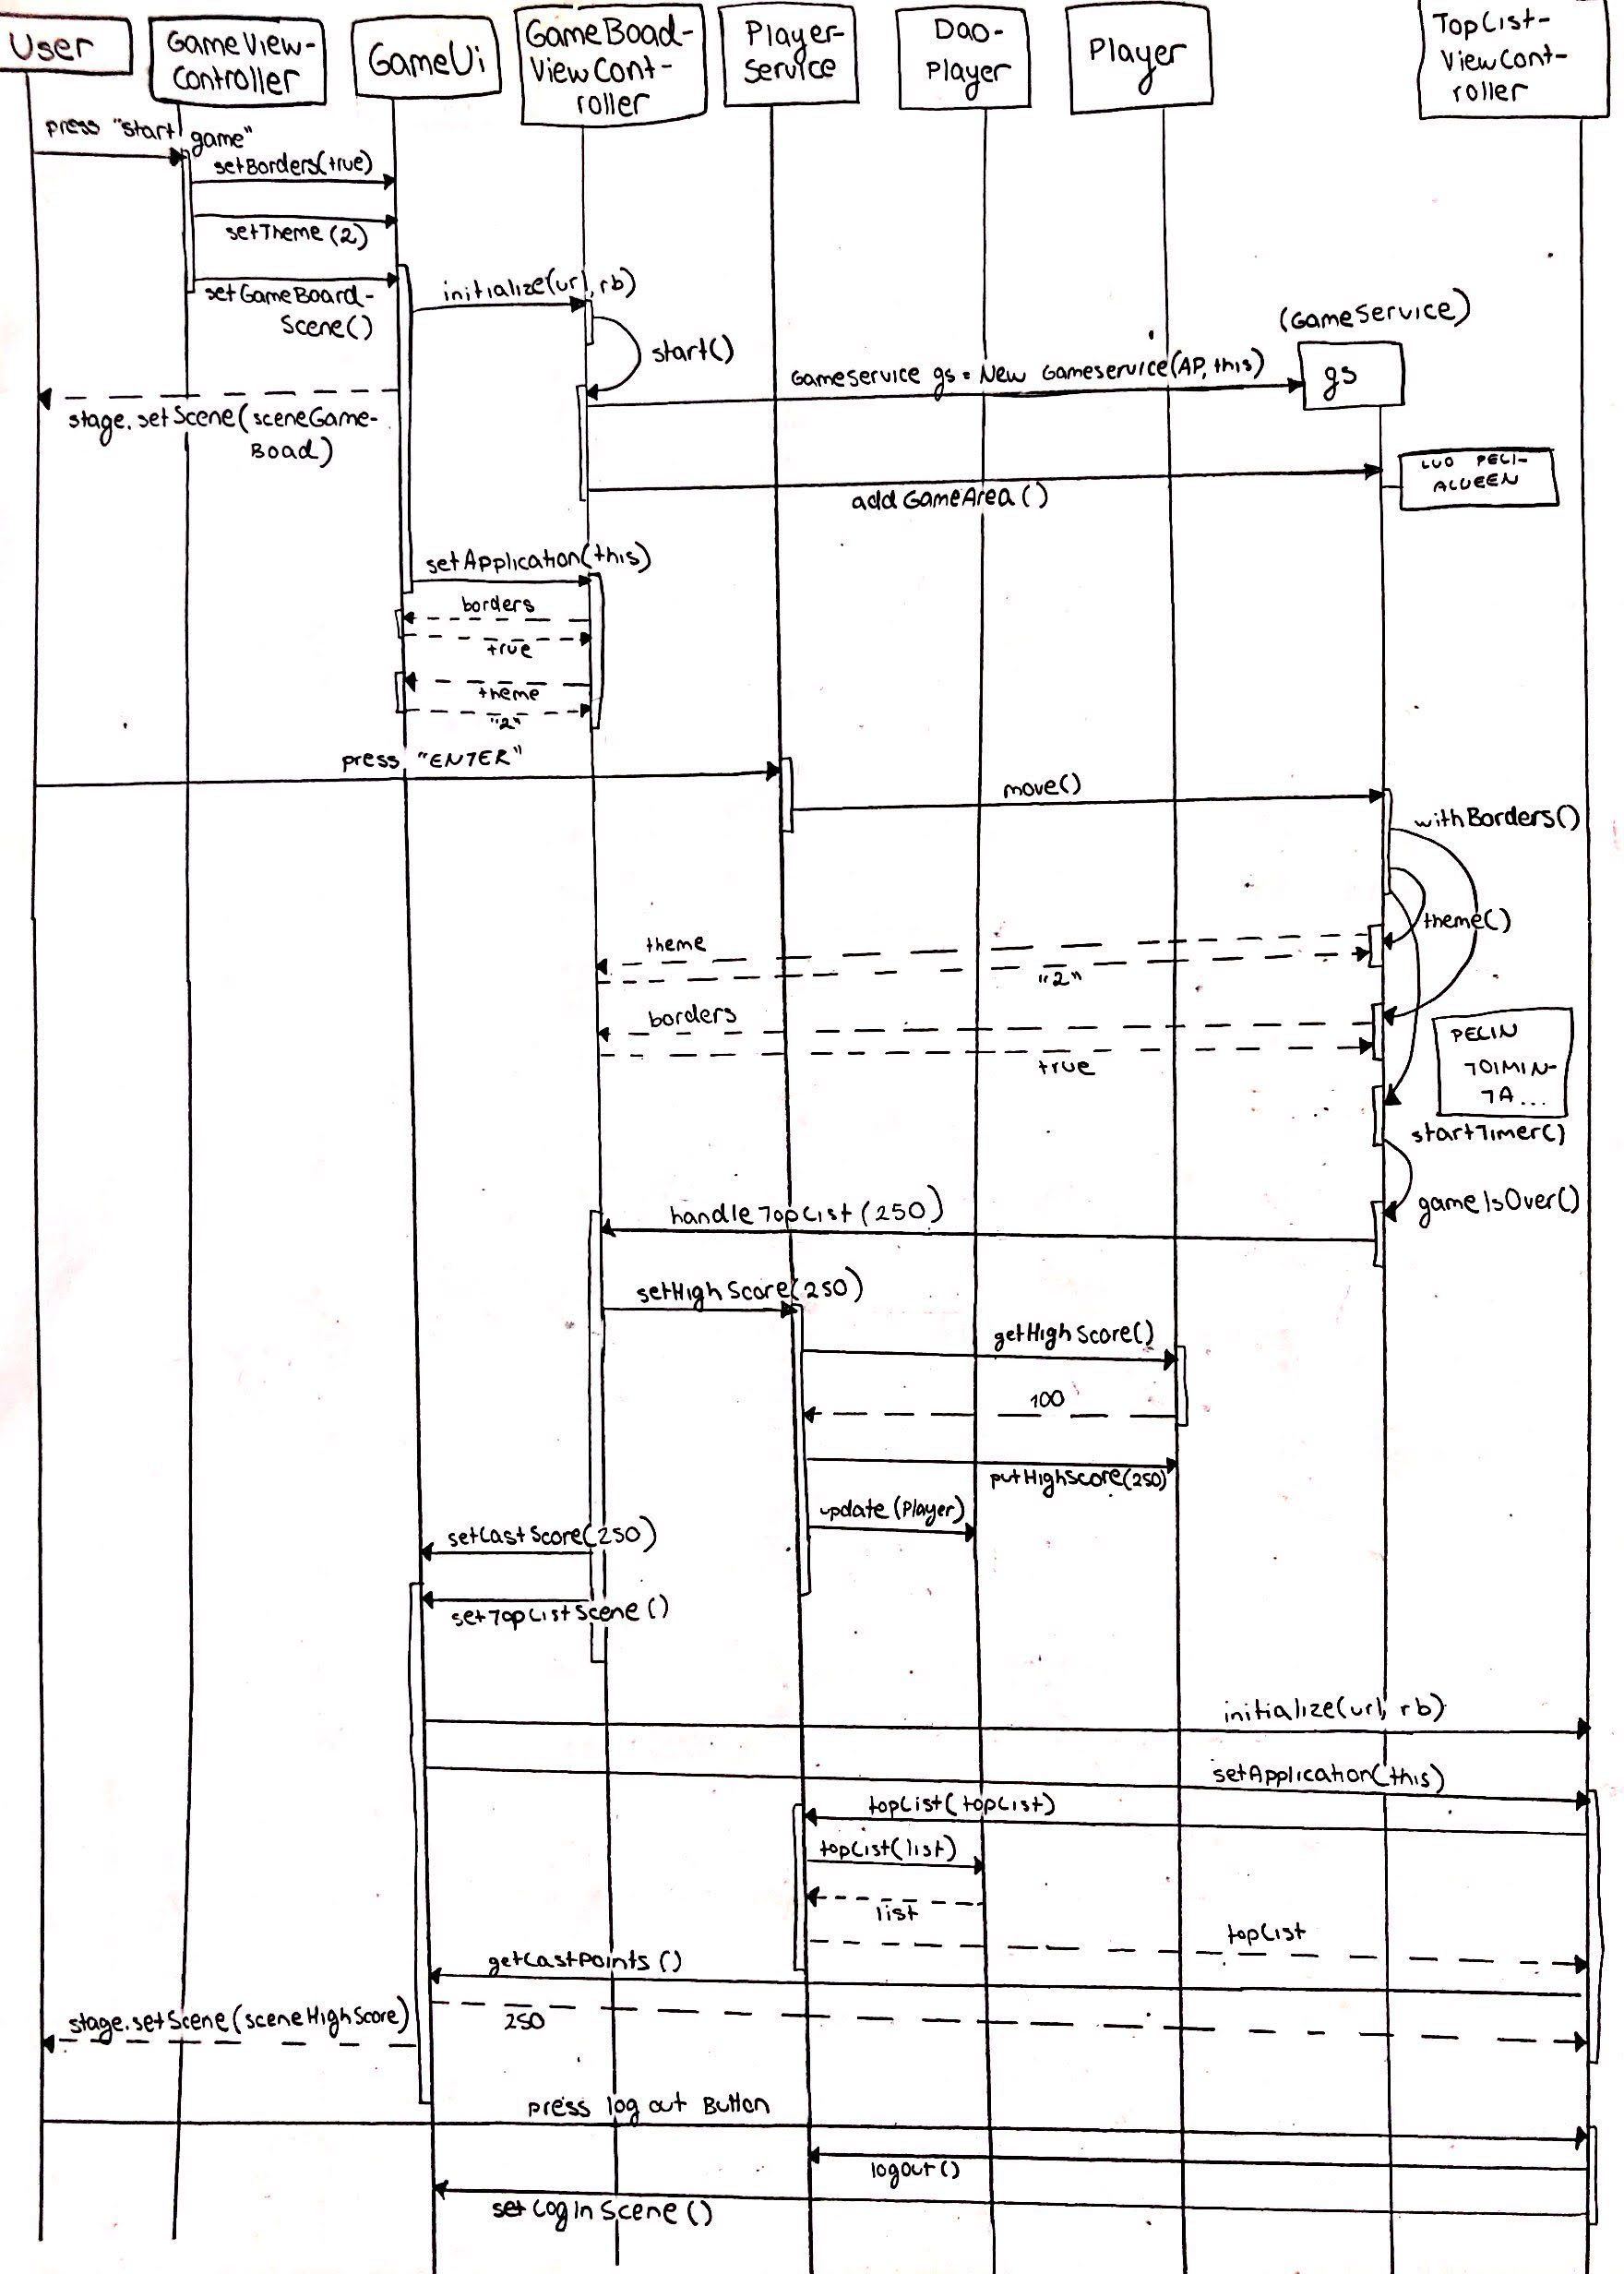 User
GameView-
controller
GameUi
GameBoad-
ViewCont-
roller
Player-
service
Dao-
Player
Player
TopList-
ViewCont-
roller
press "start game"
setBorders(true)
setTheme(2)
setGameBoard-
Scene()
initialize(url, rb)
start()
(GameService)
Gameservice gs = New Gameservice(AP, this)
gs
stage.setScene(sceneGame-
Boad)
LUO PELI-
ALUEEN
addGameArea()
setApplication(this)
borders
true
theme
"2"
press "ENTER"
move()
withBorders()
theme()
theme
"2"
borders
true
PELIN
TOIMIN-
TA...
startTimer()
gameIsOver()
handleTopList(250)
setHighScore(250)
getHighScore()
100
putHighScore(250)
update(Player)
setLastScore(250)
setTopListScene()
initialize(url, rb)
setApplication(this)
topList(topList)
topList(list)
list
topList
getLastPoints()
250
stage.setScene(sceneHighScore)
press log out Button
logout()
setLogInScene()